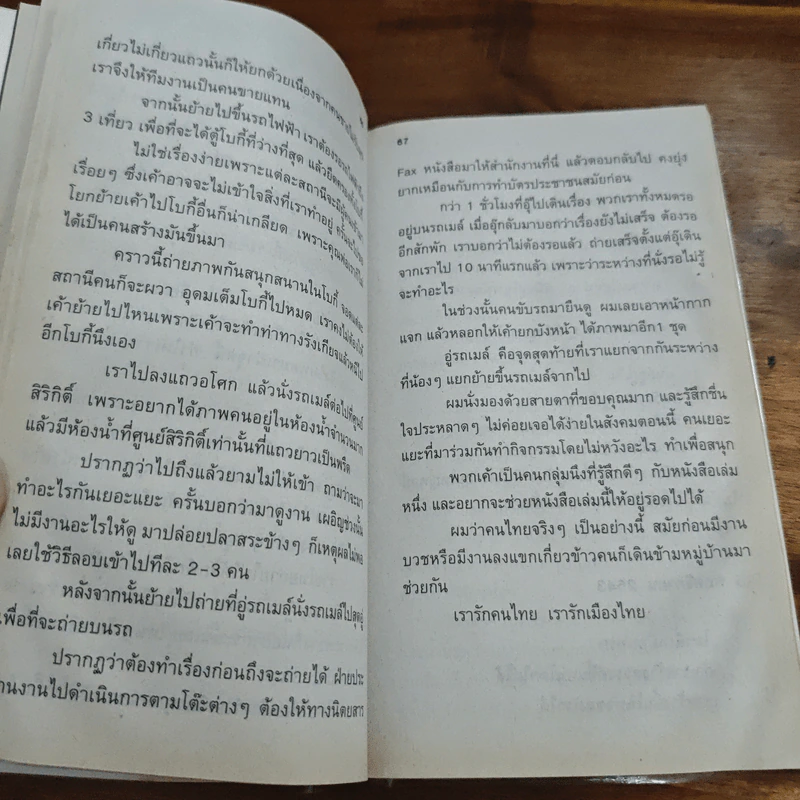 เกี่ยวไม่เกี่ยวแถวนั้นก็ให้ยกด้วยเนื่องจากคน
เราจึงให้ทีมงานเป็นคนขายแทน
จากนั้นย้ายไปขึ้นรถไฟฟ้า เราต้อง
3 เที่ยว เพื่อที่จะได้ตู้โบกี้ที่ว่างที่สุด แล้วยึด
ไม่ใช่เรื่องง่ายเพราะแต่ละสถานีจะมี
เรื่อยๆ ซึ่งเค้าอาจจะไม่เข้าใจสิ่งที่เราทำอยู่ ครั้นจะ
โยกย้ายเค้าไปโบกี้อื่นก็น่าเกลียด เพราะคุณ
ได้เป็นคนสร้างมันขึ้นมา
คราวนี้ถ่ายภาพกันสนุกสนานในโบกี้ จอดแต่ละ
สถานีคนก็จะผวา อุดมเต็มโบกี้ไปหมด เราคงไม่ต้องให้
เค้าย้ายไปไหนเพราะเค้าจะทำท่าทางรังเกียจแล้วหนีไป
อีกโบกี้นึงเอง
เราไปลงแถวอโศก แล้วนั่งรถเมล์ต่อไปที่ศูนย์
สิริกิติ์ เพราะอยากได้ภาพคนอยู่ในห้องน้ำจำนวนมาก
แล้วมีห้องน้ำที่ศูนย์สิริกิติ์เท่านั้นที่แถวยาวเป็นพรืด
ปรากฏว่าไปถึงแล้วยามไม่ให้เข้า ถามว่าจะมา
ทำอะไรกันเยอะแยะ ครั้นบอกว่ามาดูงาน เผอิญช่วงนั้น
ไม่มีงานอะไรให้ดู มาปล่อยปลาสระข้างๆ ก็เหตุผลไม่พอ
เลยใช้วิธีลอบเข้าไปทีละ 2-3 คน
หลังจากนั้นย้ายไปถ่ายที่อู่รถเมล์นั่งรถเมล์ไปสุดอู่
เพื่อที่จะถ่ายบนรถ
ปรากฏว่าต้องทำเรื่องก่อนถึงจะถ่ายได้ ฝ่ายประ
านงานไปดำเนินการตามโต๊ะต่างๆ ต้องให้ทางนิตยสาร
67
Fax หนังสือมาให้สำนักงานที่นี่ แล้วตอบกลับไป คงยุ่ง
ยากเหมือนกับการทำบัตรประชาชนสมัยก่อน
กว่า 1 ชั่วโมงที่อุ๊ไปเดินเรื่อง พวกเราทั้งหมดรอ
อยู่บนรถเมล์ เมื่ออุ๊กลับมาบอกว่าเรื่องยังไม่เสร็จ ต้องรอ
อีกสักพัก เราบอกว่าไม่ต้องรอแล้ว ถ่ายเสร็จตั้งแต่อุ๊เดิน
จากเราไป 10 นาทีแรกแล้ว เพราะว่าระหว่างที่นั่งรอไม่รู้
จะทำอะไร
ในช่วงนั้นคนขับรถมายืนดู ผมเลยเอาหน้ากาก
แจก แล้วหลอกให้เค้ายกบังหน้า ได้ภาพมาอีก1 ชุด
อู่รถเมล์ คือจุดสุดท้ายที่เราแยกจากกันระหว่าง
ที่น้องๆ แยกย้ายขึ้นรถเมล์จากไป
ผมนั่งมองด้วยสายตาที่ขอบคุณมาก และรู้สึกชื่น
ใจประหลาดๆ ไม่ค่อยเจอได้ง่ายในสังคมตอนนี้ คนเยอะ
แยะที่มาร่วมกันทำกิจกรรมโดยไม่หวังอะไร ทำเพื่อสนุก
พวกเค้าเป็นคนกลุ่มนึงที่รู้สึกดีๆ กับหนังสือเล่ม
หนึ่ง และอยากจะช่วยหนังสือเล่มนี้ให้อยู่รอดไปได้
ผมว่าคนไทยจริงๆ เป็นอย่างนี้ สมัยก่อนมีงาน
บวชหรือมีงานลงแขกเกี่ยวข้าวคนก็เดินข้ามหมู่บ้านมา
ช่วยกัน
เรารักคนไทย เรารักเมืองไทย